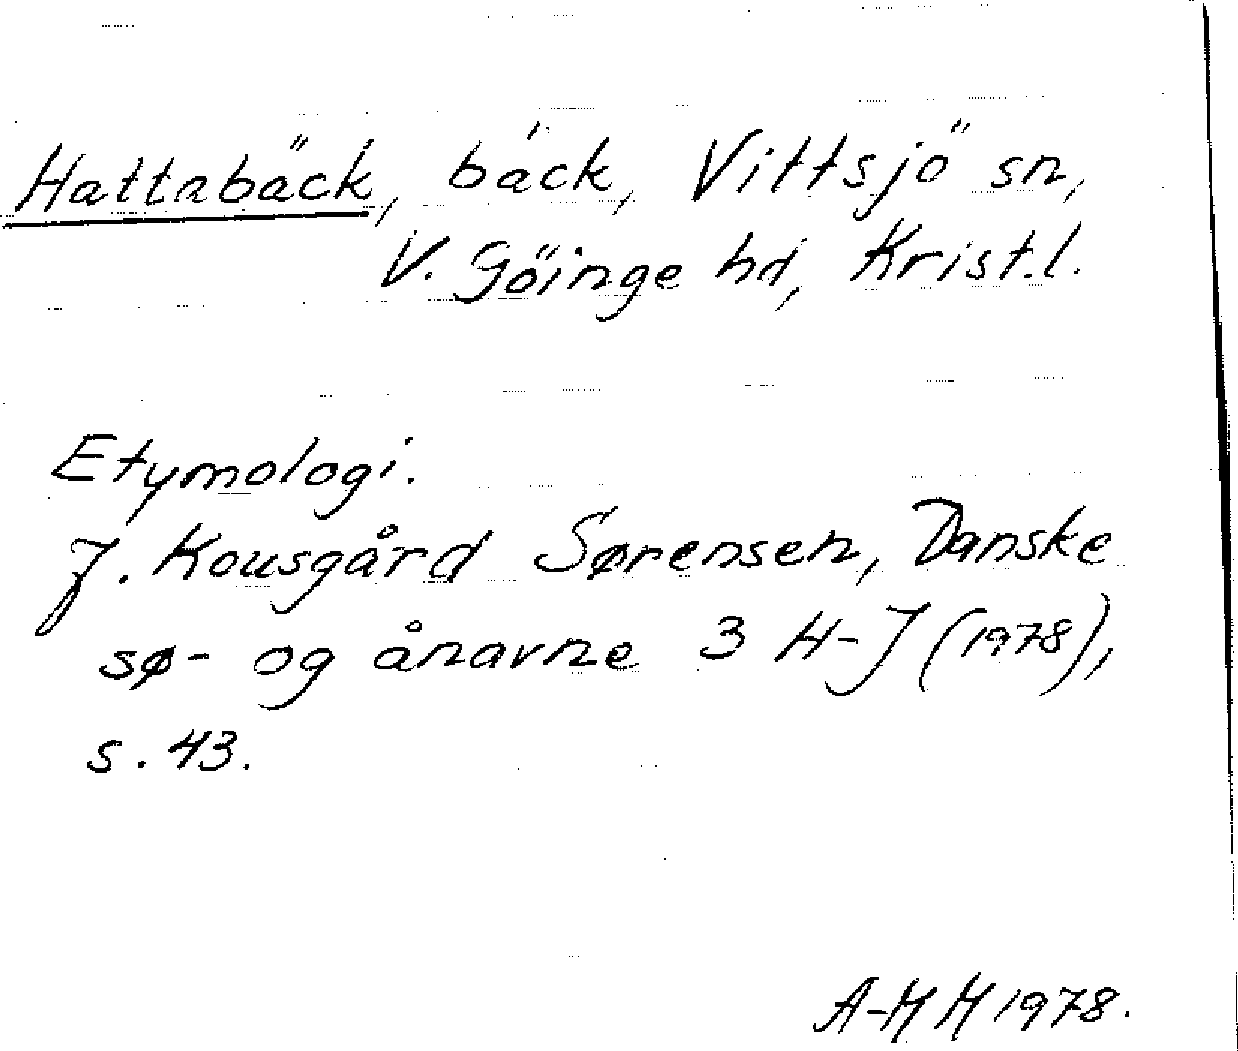 Hattabäck, bäck, Vittsjö sn,
V. Göinge hd, Krist.l.
Etymologi.
J. Kousgård Sørensen, Danske
sø- og ånavne 3 H-J (1978),
s. 43.
A-MM 1978.